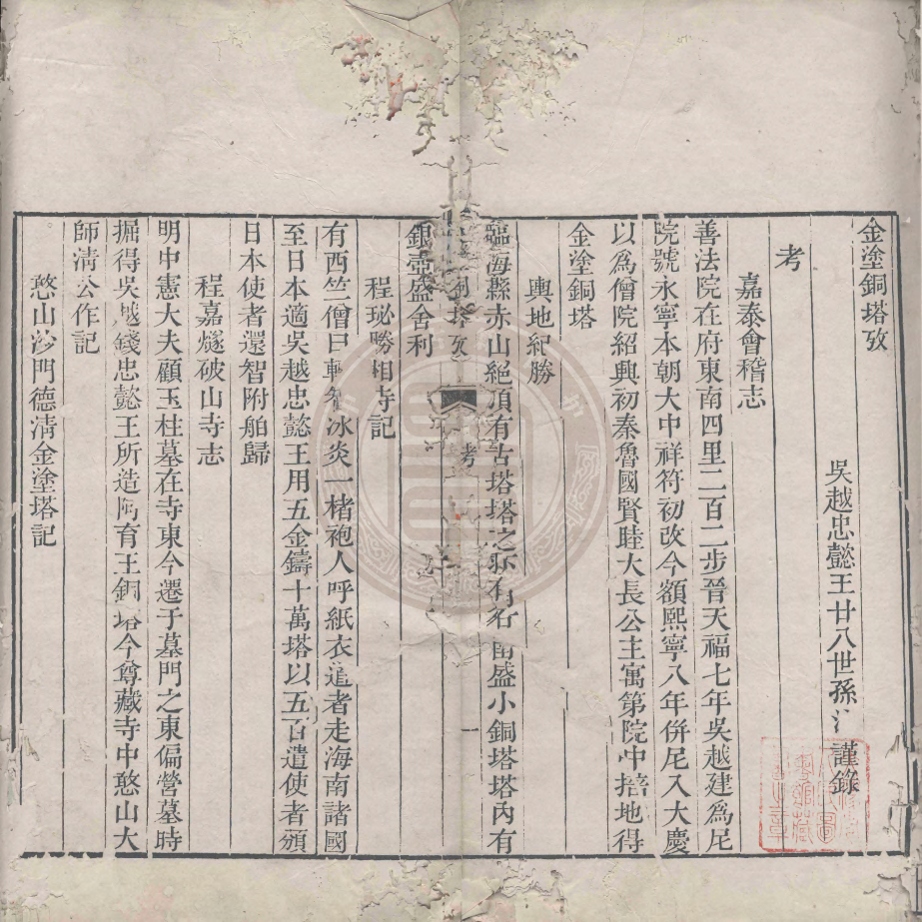 金塗銅塔攷
吳越忠懿王廿八世孫 謹錄
考
嘉泰會稽志
善法院在府東南四里二百二步晉天福七年吳越建爲尼
院號永寧本朝大中祥符初改今額熙寧八年併尼入大慶
以爲僧院紹興初秦魯國賢睦大長公主寓第院中掊地得
金塗銅塔
輿地紀勝
臨海縣赤山絕頂有古塔塔之 有 盛小銅塔塔內有
銀壺盛舍利
塔攷 考 一
程珌勝相寺記
有西竺僧曰轉智冰炎一楮袍人呼紙衣道者走海南諸國
至日本適吳越忠懿王用五金鑄十萬塔以五百遣使者頒
日本使者還智附舶歸
程嘉燧破山寺志
明中憲大夫顧玉柱墓在寺東今遷于墓門之東偏營墓時
掘得吳越錢忠懿王所造阿育王銅塔今尊藏寺中憨山大
師清公作記
憨山沙門德清金塗塔記